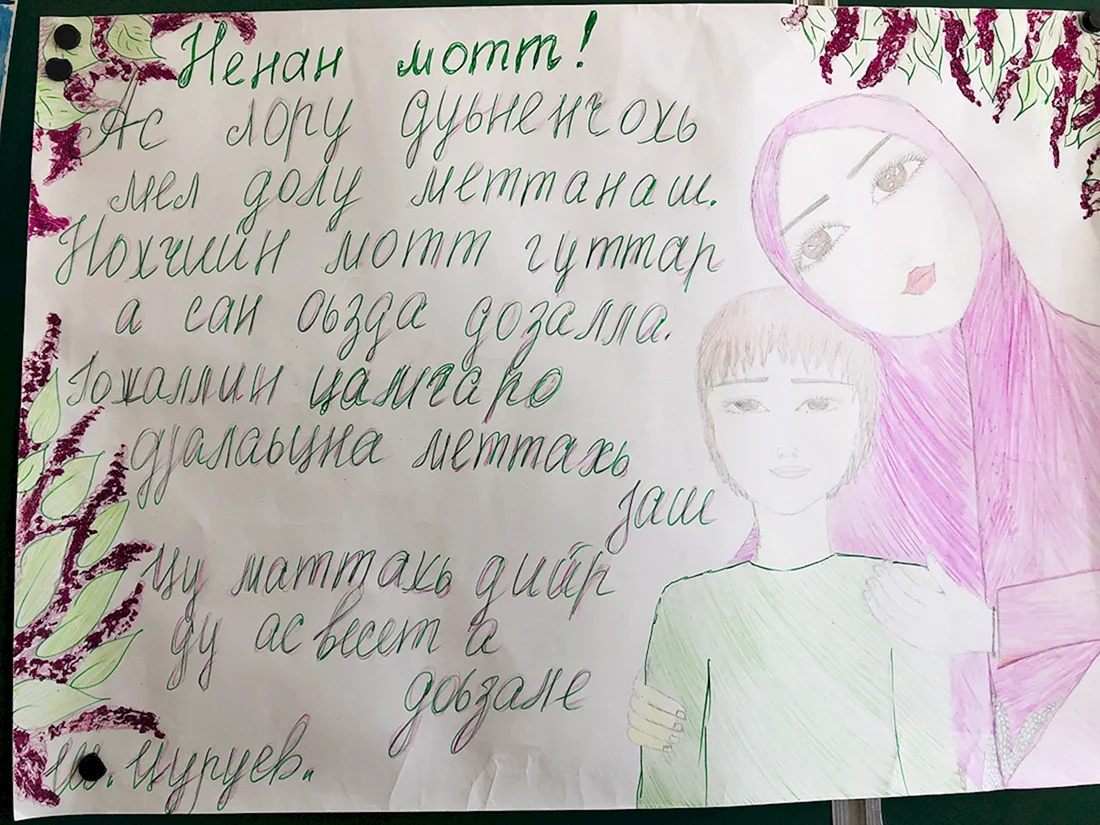 Ненан мотт!
Ас лору дуьненчохь
мел долу меттанаш.
Нохчийн мотт гуттар
а сан оьзда дозалла.
Ӏожаллин цамгаро
дӀалаьцна меттахь
Ӏаш
Цу маттахь дийр
ду ас весет а
доьзале
Ш. Цуруев.